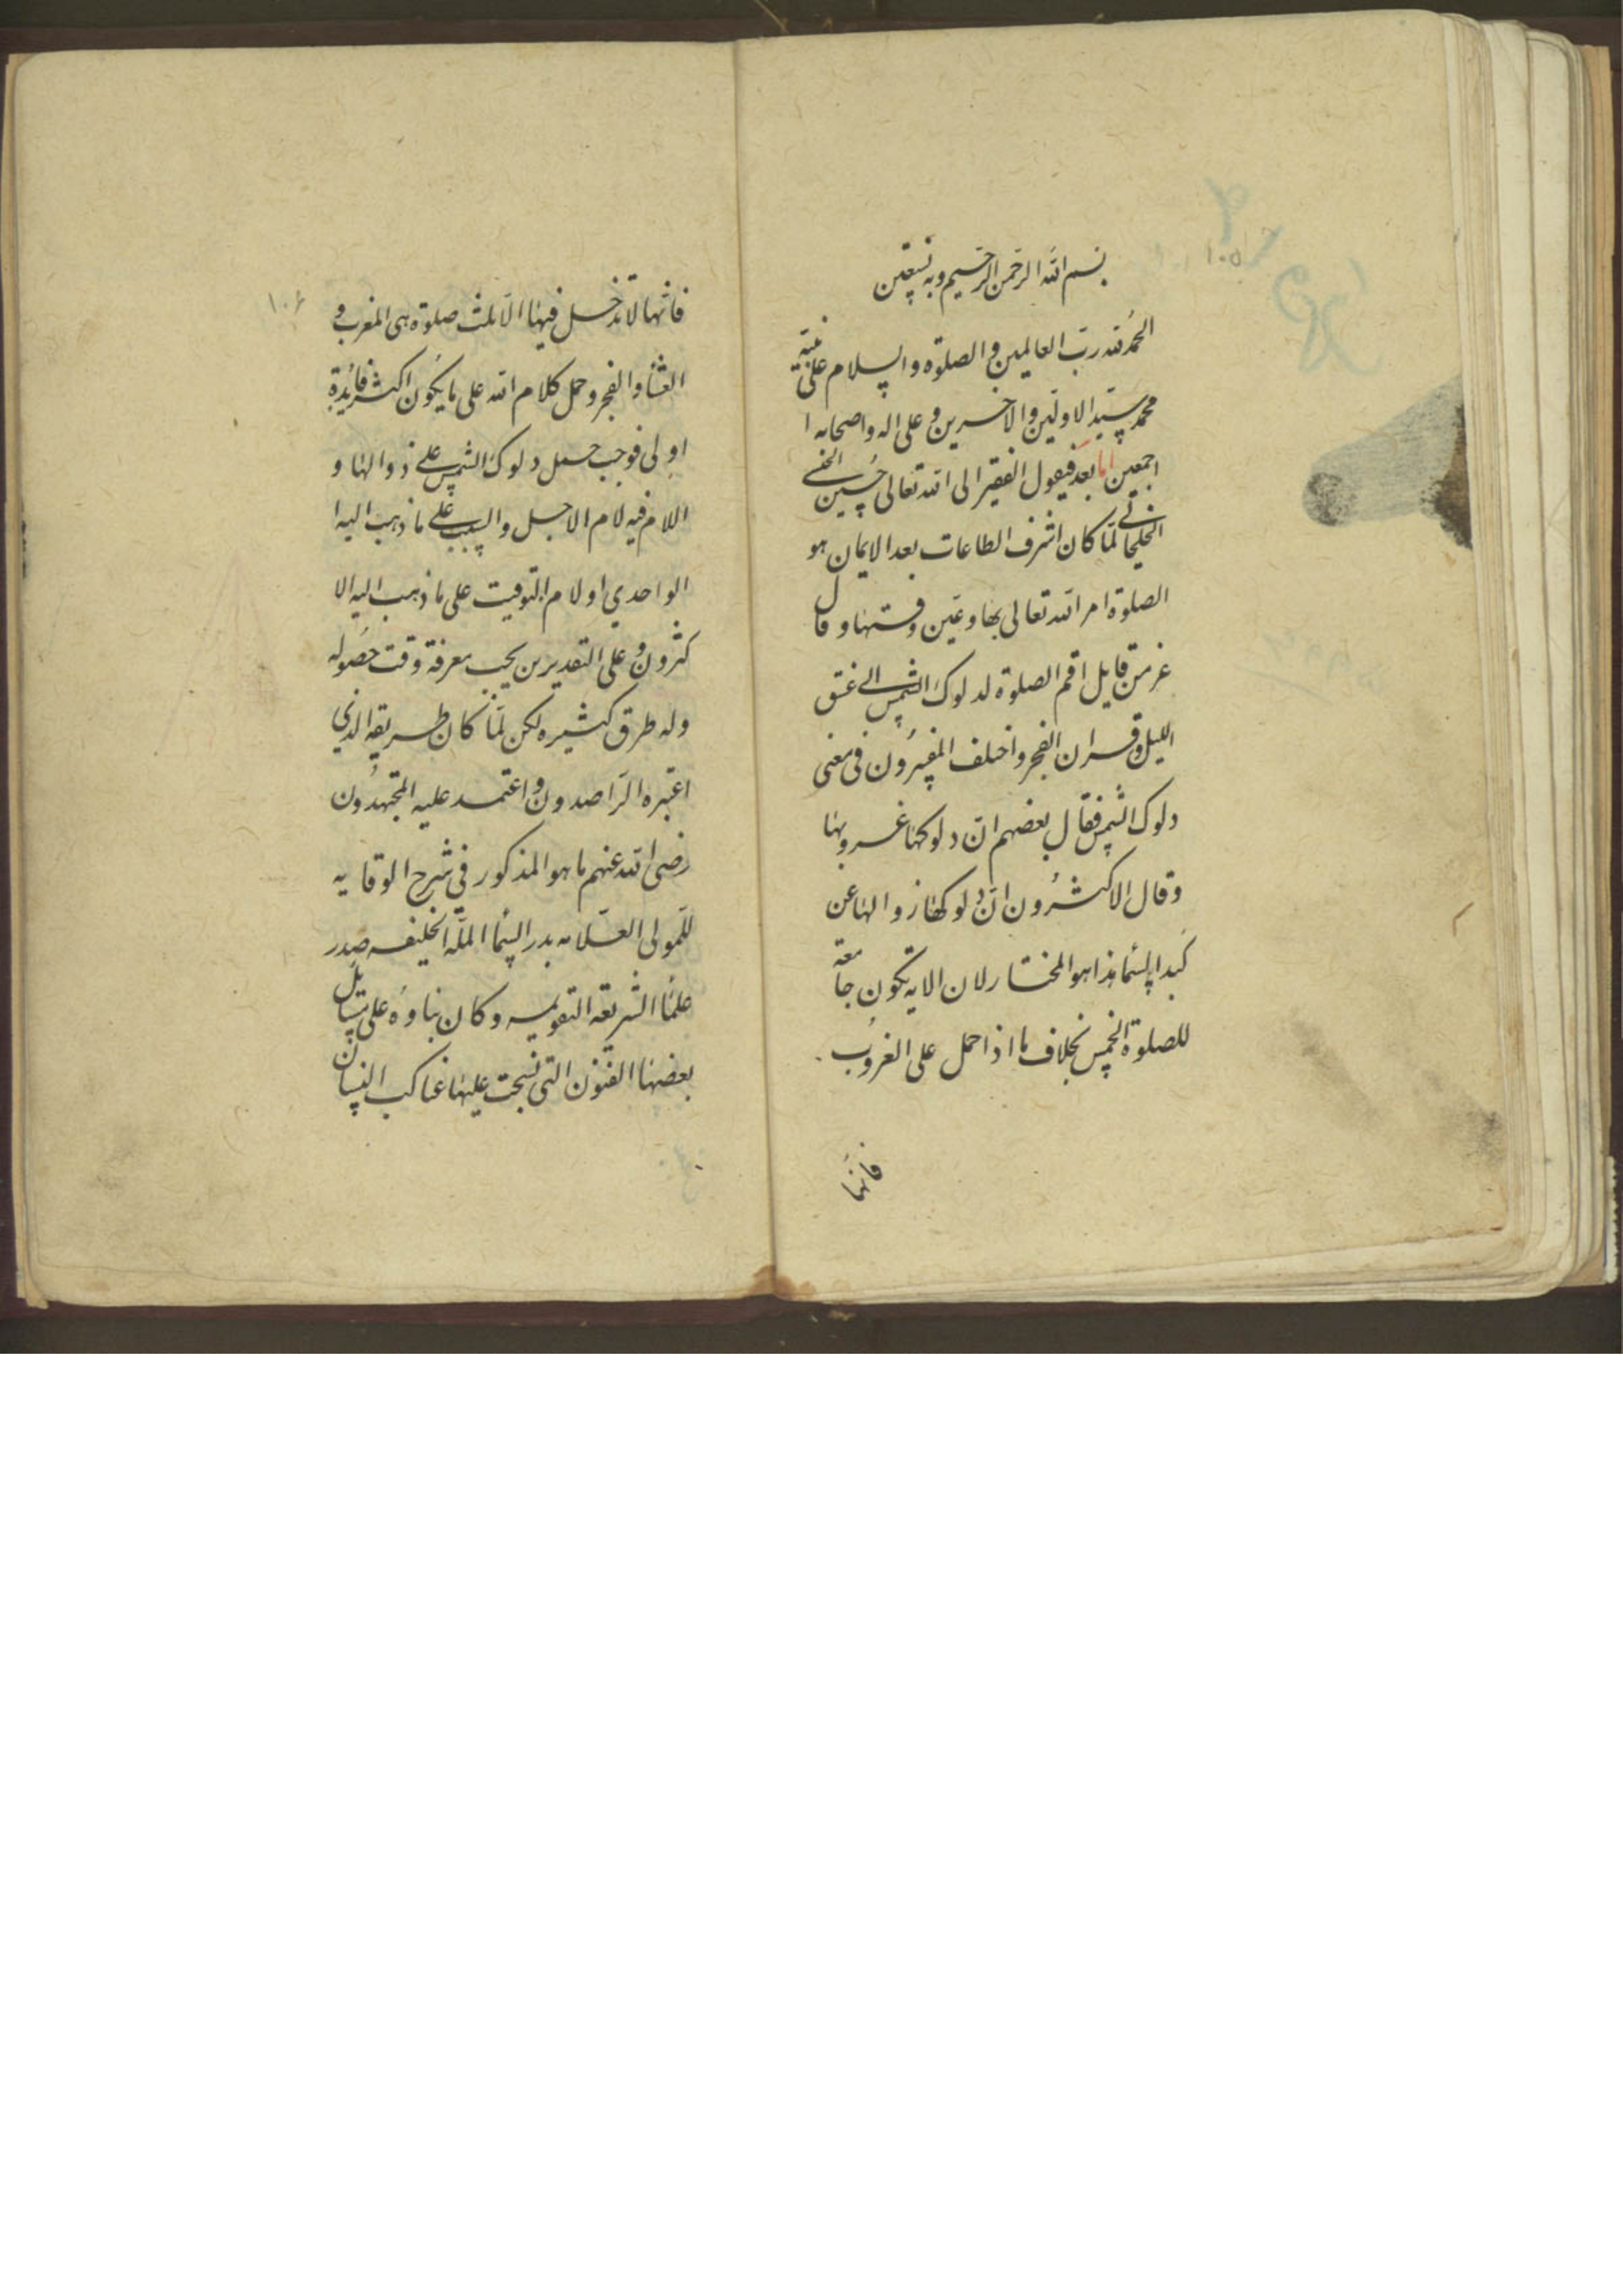 ١٠٥
بسم الله الرحمن الرحيم وبه نستعين
الحمد لله رب العالمين والصلوة والسلام على نبيه
محمد سيد الاولين والاخرين وعلى اله واصحابه ا
اجمعين اما بعد فيقول الفقير الى الله تعالى حسين الحسني
الخلخالي لما كان اشرف الطاعات بعد الايمان هو
الصلوة امر الله تعالى بها وعين وقتها وقال
عز من قايل اقم الصلوة لدلوك الشمس الى غسق
الليل وقران الفجر واختلف المفسرون فى معنى
دلوك الشمس فقال بعضهم ان دلوكها غروبها
وقال الاكثرون ان دلوكها زوالها عن
كبد السما هذا هو المختار لان الايه تكون جامعة
للصلوة الخمس بخلاف ما اذا حمل على الغروب
فانها
١٠٦
فانها لا تدخل فيها الا ثلث صلوة هى المغرب و
العشأ والفجر وحمل كلام الله على ما يكون اكثر فائدة
اولى فوجب حمل دلوك الشمس على زوالها و
اللام فيه لام الاجل والسبب على ما ذهب اليه ا
الواحدي او لام التوقيت على ما ذهب اليه الا
كثرون وعلى التقديرين يجب معرفة وقت حصوله
وله طرق كثيره لكن لما كان طريقه الذي
اعتبره الراصدون واعتمد عليه المجتهدون
رضى الله عنهم ما هو المذكور في شرح الوقايه
للمولى العلامه بدر السمأ الملة الحنيفه صدر
علمأ الشريعة القويمه وكان بناوه على مسائل
بعضها الفنون التى نسجت عليها عناكب النسيان